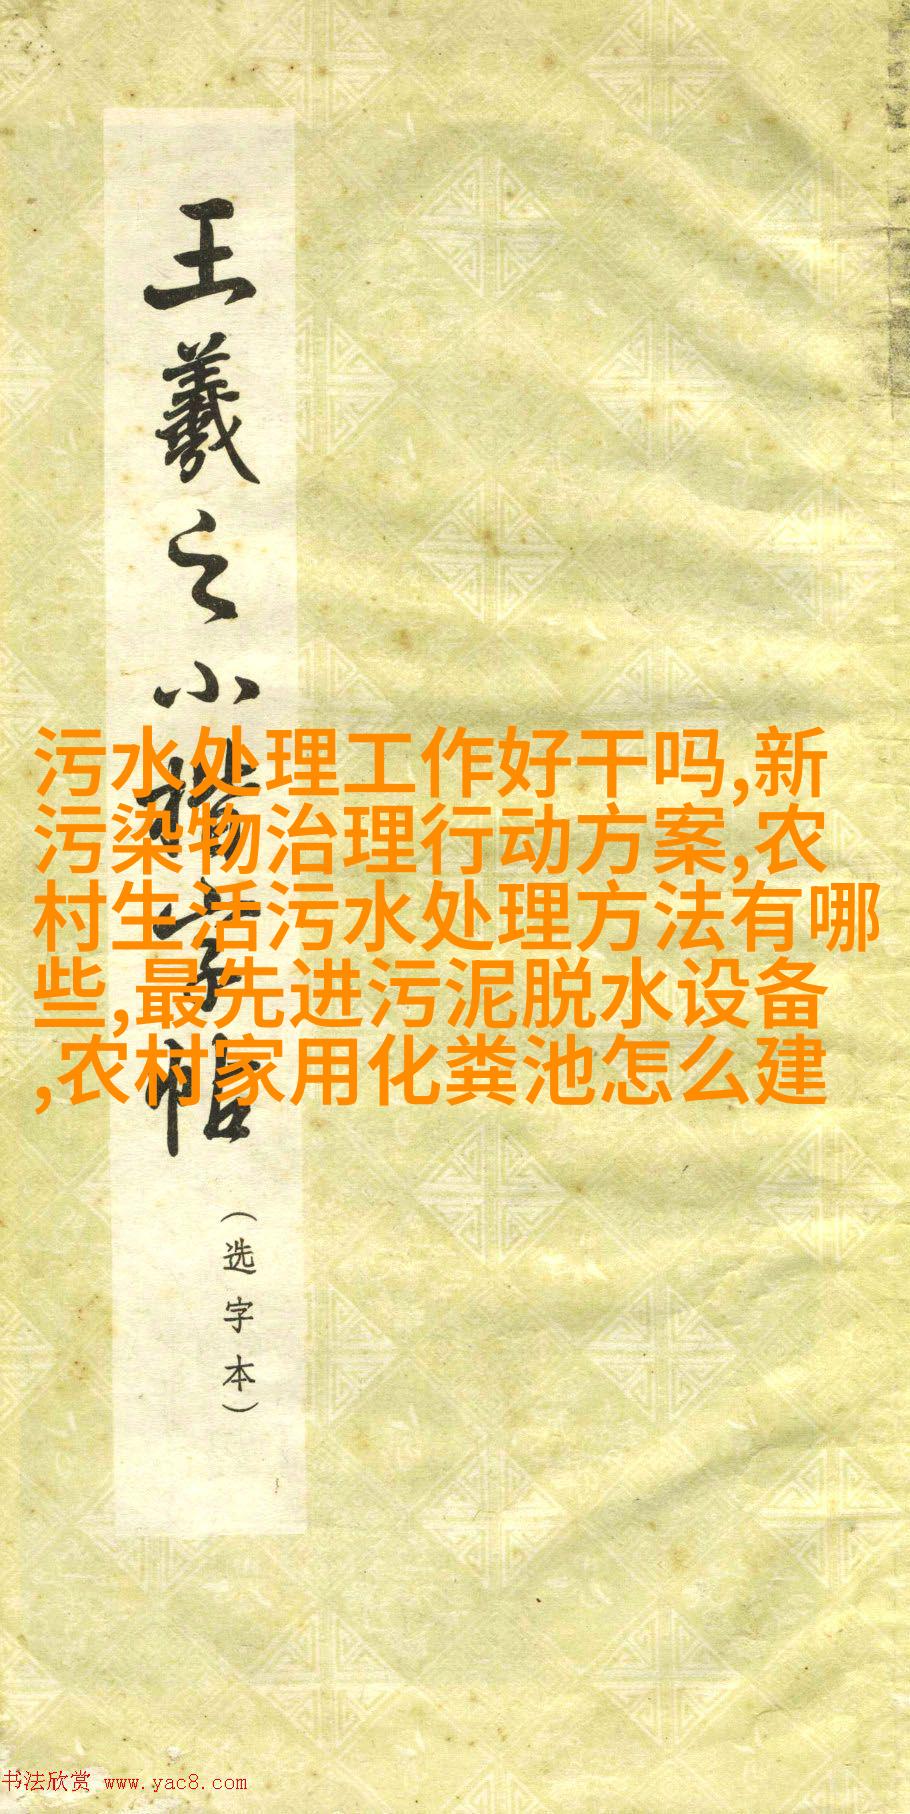 王羲之小楷字帖
（选字本）
污水处理工作好干吗,新
污染物治理行动方案,农
村生活污水处理方法有哪
些,最先进污泥脱水设备
,农村家用化粪池怎么建
书法欣赏 www.yac8.com